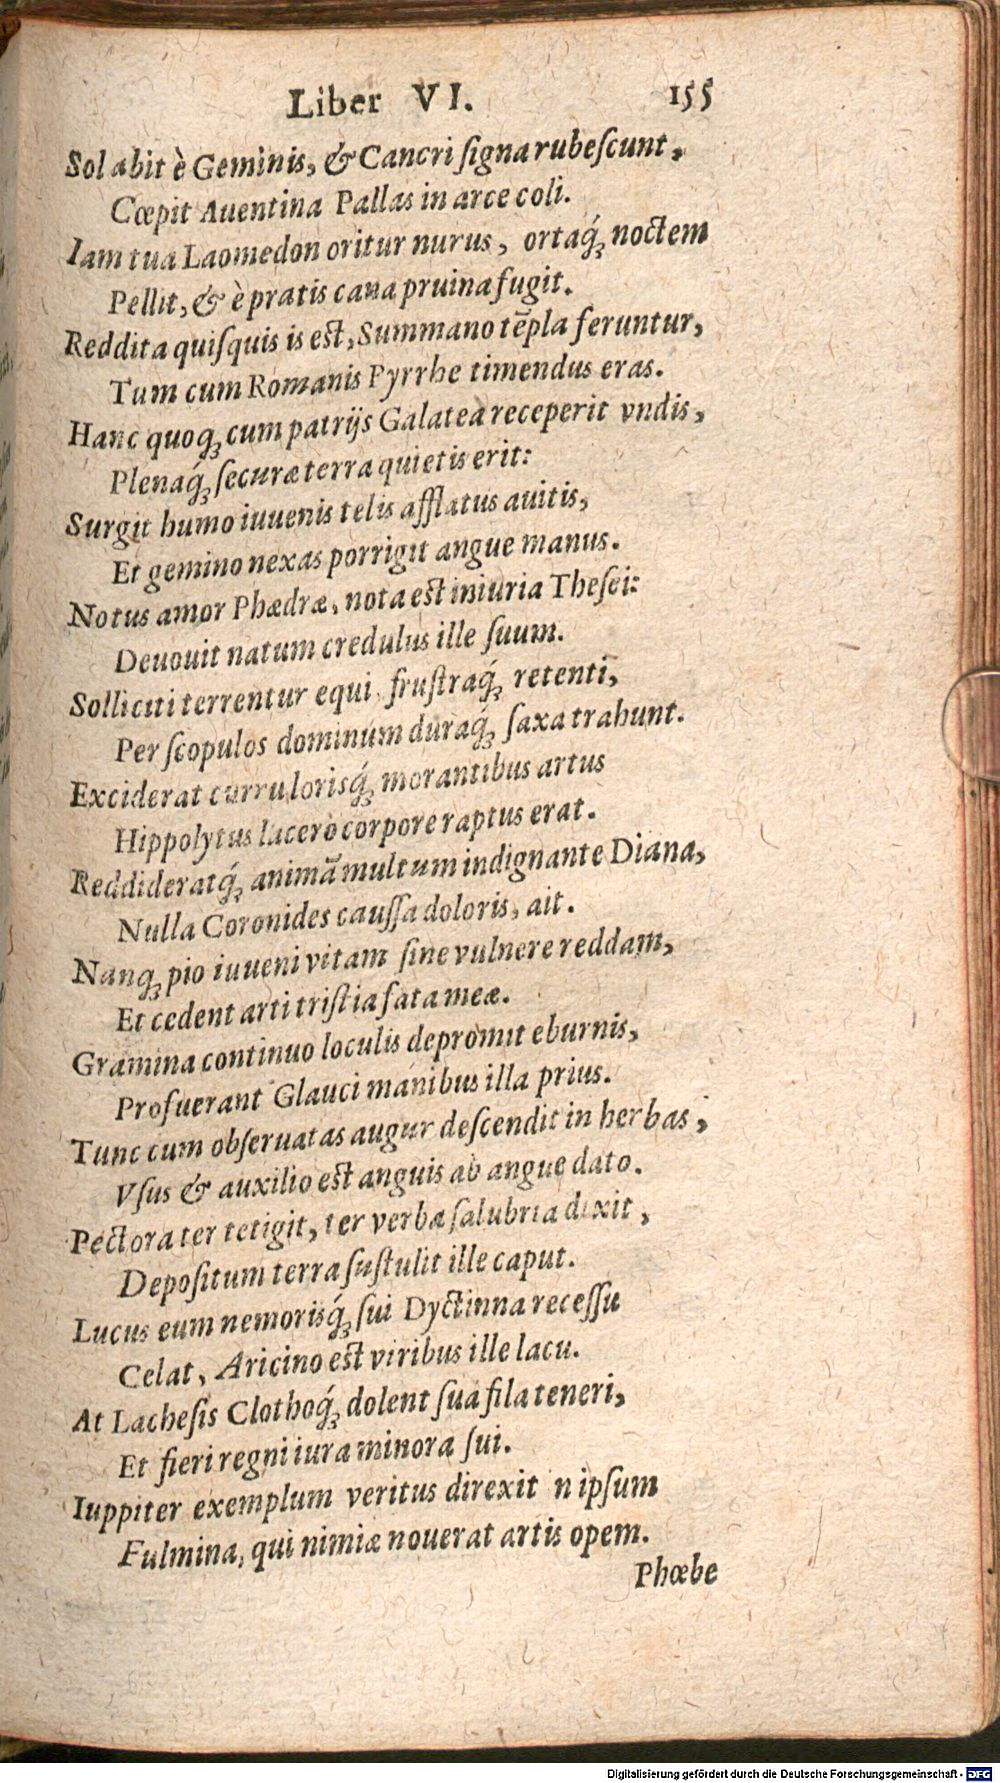 Liber VI. 155
Sol abit è Geminis, & Cancri ſigna rubeſcunt,
Cœpit Auentina Pallas in arce coli.
Iam tua Laomedon oritur nurus, ortaq́ꝫ noctem
Pellit, & è pratis cana pruina fugit.
Reddita quiſquis is est, Summano tẽpla feruntur,
Tum cum Romanis Pyrrhe timendus eras.
Hanc quoqꝫ cum patrijs Galatea receperit vndis,
Plenaq́ꝫ ſecuræ terra quietis erit:
Surgit humo iuuenis telis afflatus auitis,
Et gemino nexas porrigit angue manus.
Notus amor Phædræ, nota est iniuria Theſei:
Deuouit natum credulus ille ſuum.
Solliciti terrentur equi fruſtraq́ꝫ retenti,
Per ſcopulos dominum duraq́ꝫ ſaxa trahunt.
Exciderat curru lorisq́ꝫ morantibus artus
Hippolytus lacero corpore raptus erat.
Reddideratq́ꝫ animã multum indignante Diana,
Nulla Coronides cauſſa doloris, ait.
Nanqꝫ pio iuueni vitam ſine vulnere reddam,
Et cedent arti triſtia fata meæ.
Gramina continuo loculis depromit eburnis,
Profuerant Glauci manibus illa prius.
Tunc cum obſeruatas augur deſcendit in herbas,
Vſus & auxilio est anguis ab angue dato.
Pectora ter tetigit, ter verba ſalubria dixit,
Depoſitum terra ſuſtulit ille caput.
Lucus eum nemorisq́ꝫ ſui Dyctinna receſſu
Celat, Aricino est viribus ille lacu.
At Lacheſis Clothoq́ꝫ dolent ſua fila teneri,
Et fieri regni iura minora ſui.
Iuppiter exemplum veritus direxit n ipſum
Fulmina, qui nimiæ nouerat artis opem.
Phœbe
Digitalisierung gefördert durch die Deutsche Forschungsgemeinschaft - DFG